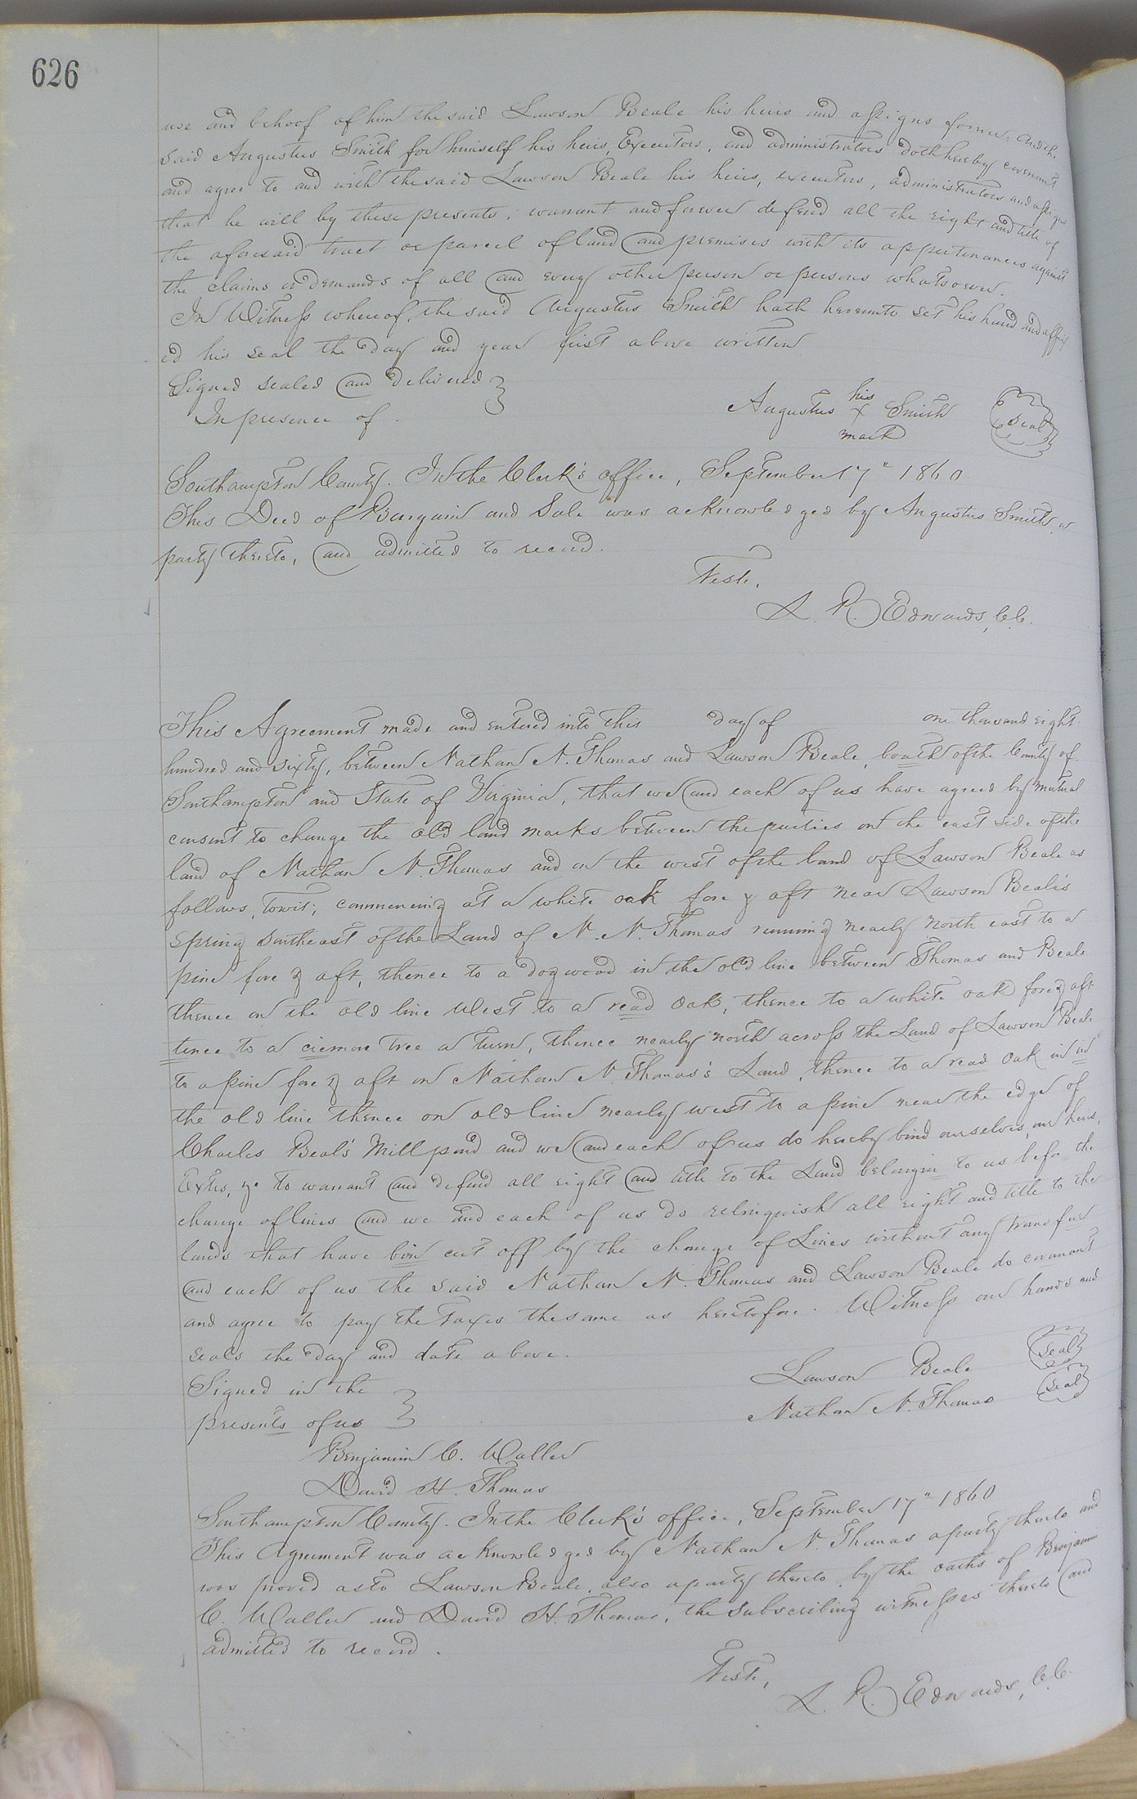 626
use and behoof of him the said Lawson Beale his heirs and assigns forever. And the
said Augustus Smith for himself his heirs, Executors, and administrators doth hereby covenant
and agree to and with the said Lawson Beale his heirs, executors, administrators and assigns
that he will by these presents, warrant and forever defend all the right and title of
the aforesaid tract or parcel of land and premises with its appertenances against
the claims or demands of all and every other person or persons whatsoever.
In Witness whereof, the said Augustus Smith hath hereunto set his hand and affix
ed his seal the day and year first above written
Signed sealed and delivered }
In presence of.
his
Augustus x Smith seal
mark
Southampton County. In the Clerk's office, September 17" 1860
This Deed of Bargain and Sale was acknowledged by Augustus Smith, a
party thereto, and admitted to record.
Teste,
L. R. Edwards, C.C.
This Agreement made and entered into this day of one thousand eight
hundred and sixty, between Nathan N. Thomas and Lawson Beale, boath of the County of
Southampton and State of Virginia, that we and each of us have agreed by mutual
consent to change the old land marks between the parties on the east side of the
land of Nathan N. Thomas and on the west of the land of Lawson Beale as
follows, towit; commencing at a white oak fore & aft near Lawson Beale's
spring southeast of the Land of N. N. Thomas running nearly north east to a
pine fore & aft, thence to a dogwood in the old line between Thomas and Beale
thence on the old line West to a read oak, thence to a white oak fore & aft
tence to a ciemore tree a turn, thence nearly north across the Land of Lawson Beale
to a pine fore & aft on Nathan N. Thomas's Land, thence to a read oak in on
the old line thence on old line nearly west to a pine near the edge of
Charles Beal's Mill pond and we and each of us do hereby bind ourselves, our heirs,
Extrs, &c to warrant and defend all right and title to the Land belongin to us befo the
change of lines and we and each of us do relinquish all right and title to the
lands that have bin cut off by the change of Lines without any transfur
and each of us the said Nathan N. Thomas and Lawson Beale do covenant
and agree to pay the Taxes the same as heretofore. Witness our hands and
seals the day and date above.
Signed in the }
presents of us
Lawson Beale seal
Nathan N. Thomas seal
Benjamin C. Waller
David H. Thomas
Southampton County. In the Clerk's office, September 17" 1860
This Agreement was acknowledged by Nathan N. Thomas a party thereto and
was proved as to Lawson Beale, also a party thereto, by the oaths of Benjamin
C. Waller and David H. Thomas, the subscribing witnesses thereto and
admitted to record.
Teste,
L. R. Edwards, C.C.